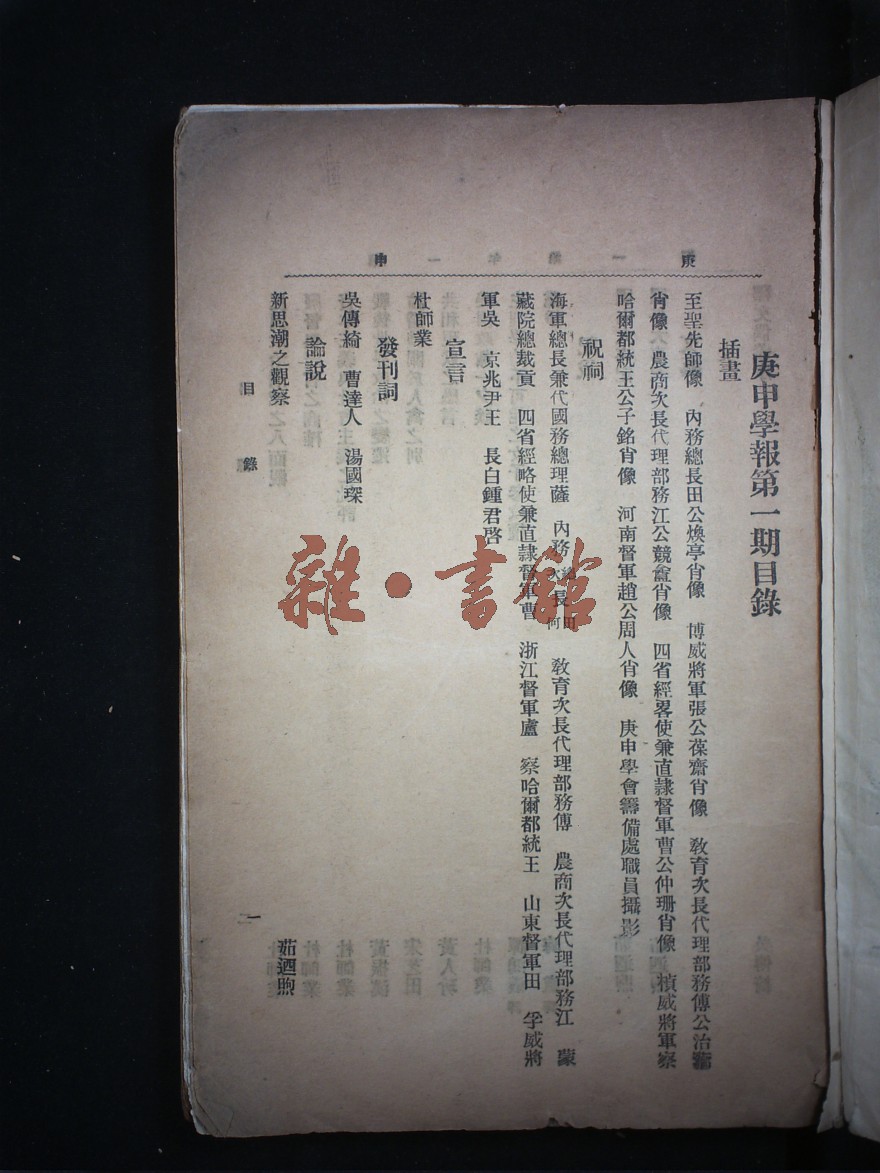 庚申學報第一期目錄
插畫
至聖先師像　內務總長田公煥亭肖像　博威將軍張公葆齋肖像　教育次長代理部務傅公治薌
肖像　農商次長代理部務江公競盦肖像　四省經畧使兼直隷督軍曹公仲珊肖像　楨威將軍察
哈爾都統王公子銘肖像　河南督軍趙公周人肖像　庚申學會籌備處職員攝影
祝詞
海軍總長兼代國務總理薩　內務總長田次長何　教育次長代理部務傅　農商次長代理部務江　蒙
藏院總裁貢　四省經略使兼直隷督軍曹　浙江督軍盧　察哈爾都統王　山東督軍田　孚威將
軍吳　京兆尹王　長白鍾君啓
宣言
杜師業
發刊詞
吳傳綺　曹達人　湯國琛
論說
新思潮之觀察　茹迺煦
目錄
一
雜·書館